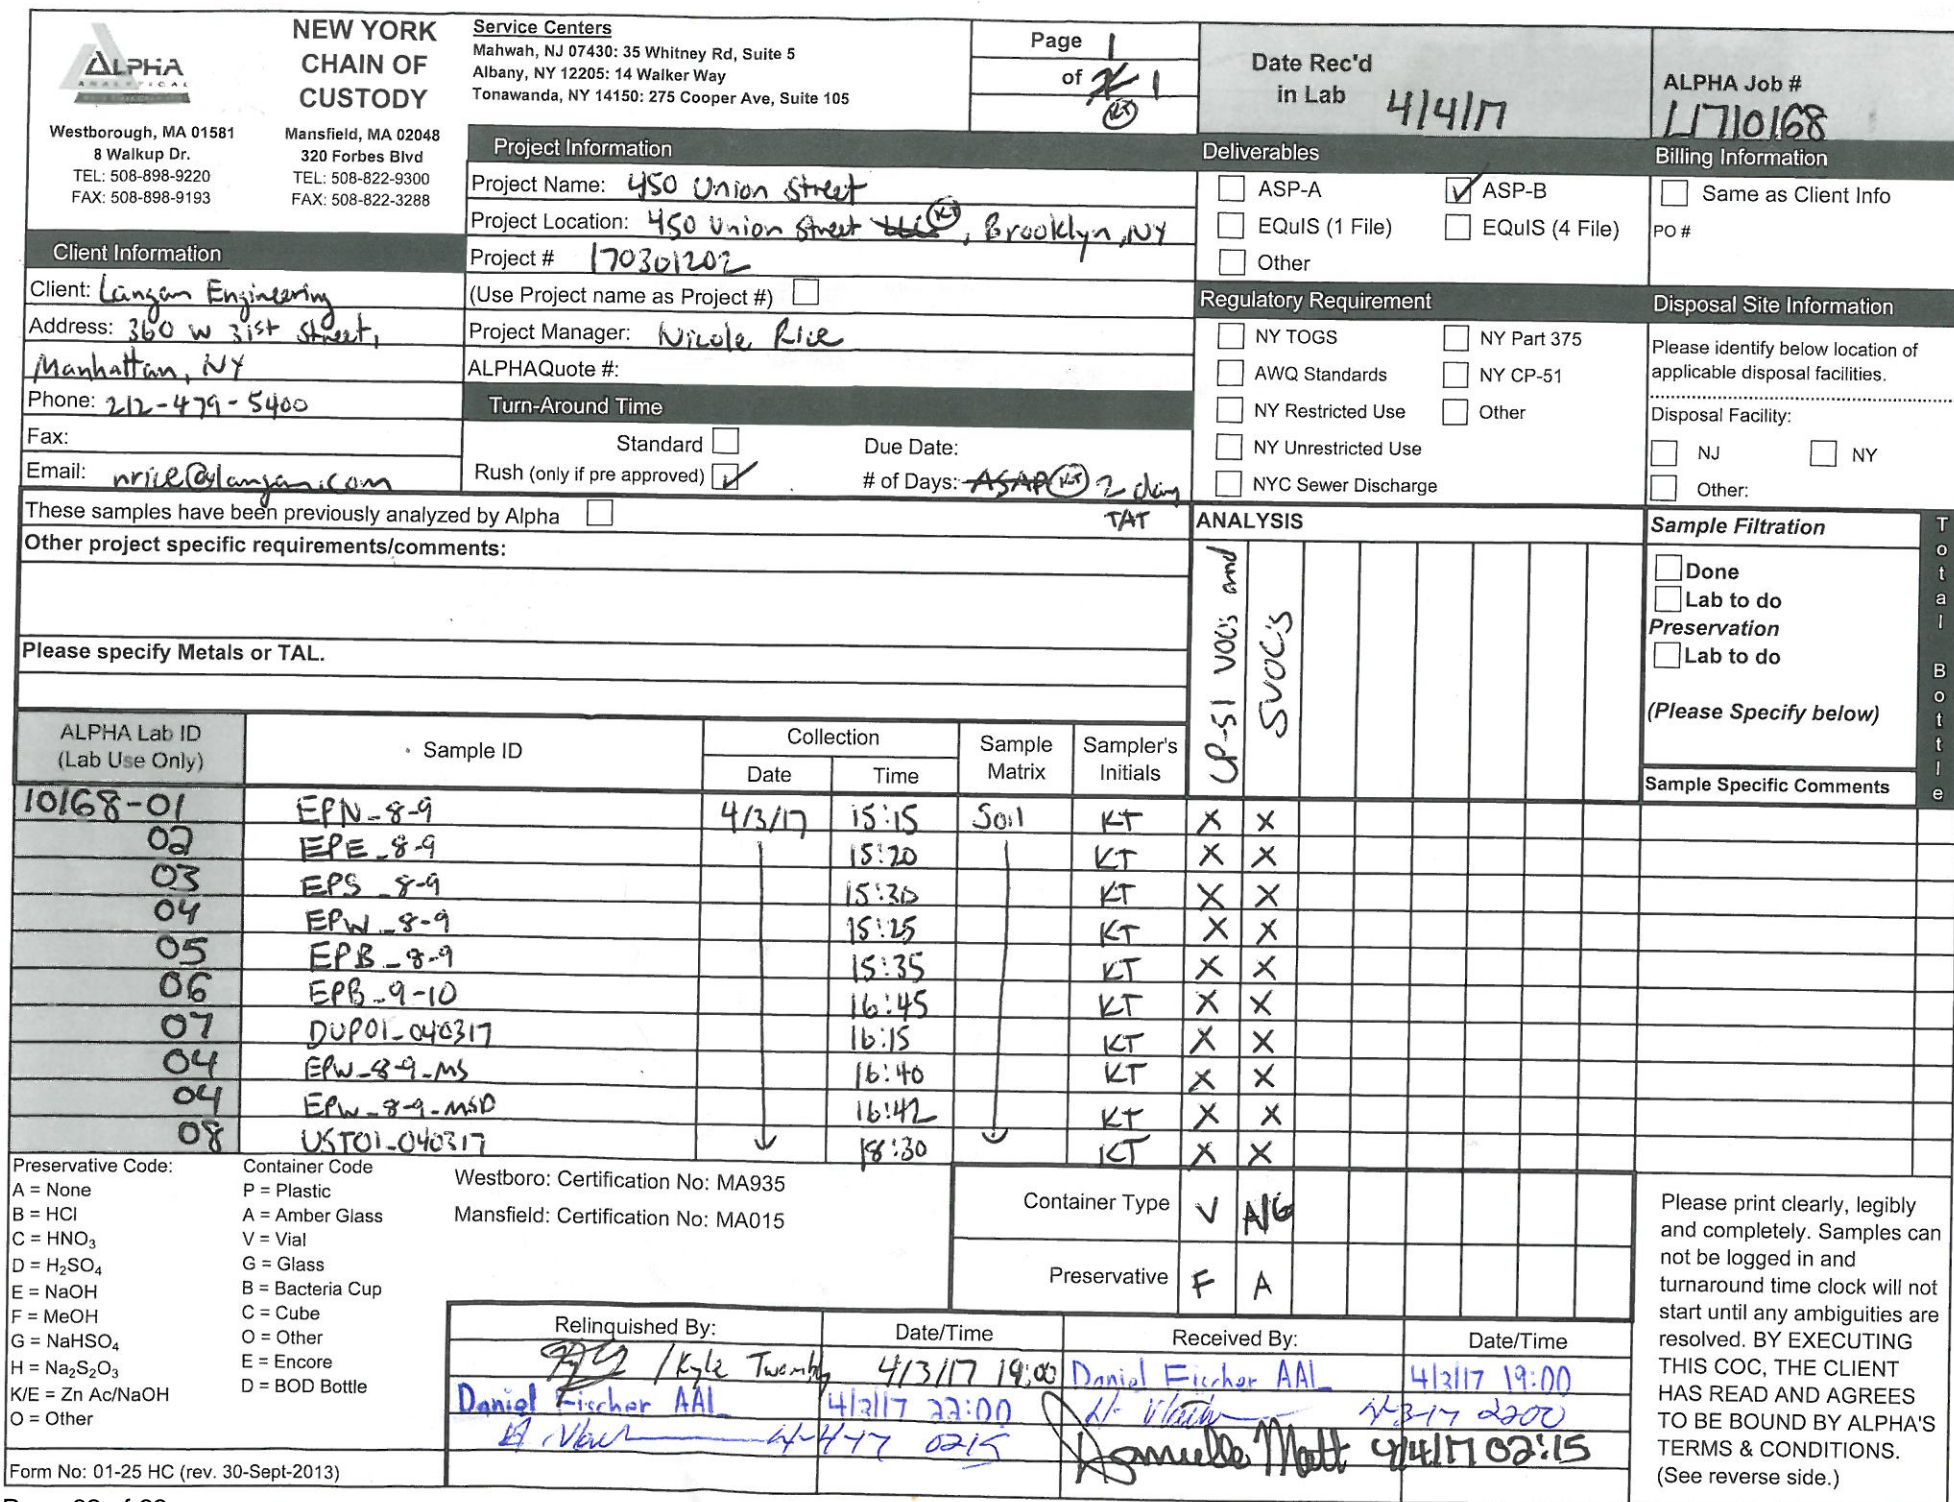 ALPHA
ANALYTICAL
NEW YORK
CHAIN OF
CUSTODY
Westborough, MA 01581
8 Walkup Dr.
TEL: 508-898-9220
FAX: 508-898-9193
Mansfield, MA 02048
320 Forbes Blvd
TEL: 508-822-9300
FAX: 508-822-3288
Service Centers
Mahwah, NJ 07430: 35 Whitney Rd, Suite 5
Albany, NY 12205: 14 Walker Way
Tonawanda, NY 14150: 275 Cooper Ave, Suite 105
Page 1
of 1
KT
Date Rec'd
in Lab 4/4/17
ALPHA Job #
L1710168
Project Information
Project Name: 450 Union Street
Project Location: 450 Union Street KT, Brooklyn, NY
Project # 170301202
(Use Project name as Project #)
Project Manager: Nicole Rice
ALPHAQuote #:
Client Information
Client: Langan Engineering
Address: 360 W 31st Street,
Manhattan, NY
Phone: 212-479-5400
Fax:
Email: nrice@langan.com
Turn-Around Time
Standard
Due Date:
Rush (only if pre approved) ✓
# of Days: ASAP KT 2 day
TAT
Deliverables
ASP-A
✓ ASP-B
EQuIS (1 File)
EQuIS (4 File)
Other
Billing Information
Same as Client Info
PO #
Regulatory Requirement
NY TOGS
NY Part 375
AWQ Standards
NY CP-51
NY Restricted Use
Other
NY Unrestricted Use
NYC Sewer Discharge
Disposal Site Information
Please identify below location of
applicable disposal facilities.
Disposal Facility:
NJ
NY
Other:
These samples have been previously analyzed by Alpha
Other project specific requirements/comments:
Please specify Metals or TAL.
ANALYSIS
CP-51 VOCs and
SVOCs
Sample Filtration
Done
Lab to do
Preservation
Lab to do
(Please Specify below)
Total Bottle
ALPHA Lab ID
(Lab Use Only)
Sample ID
Collection
Date
Time
Sample
Matrix
Sampler's
Initials
Sample Specific Comments
10168-01 EPN_8-9 4/3/17 15:15 Soil KT X X
02 EPE_8-9 15:20 KT X X
03 EPS_8-9 15:30 KT X X
04 EPW_8-9 15:25 KT X X
05 EPB_8-9 15:35 KT X X
06 EPB_9-10 16:45 KT X X
07 DUP01_040317 16:15 KT X X
04 EPW_8-9_MS 16:40 KT X X
04 EPW_8-9_MSD 16:42 KT X X
08 UST01_040317 18:30 KT X X
Preservative Code:
A = None
B = HCl
C = HNO₃
D = H₂SO₄
E = NaOH
F = MeOH
G = NaHSO₄
H = Na₂S₂O₃
K/E = Zn Ac/NaOH
O = Other
Container Code
P = Plastic
A = Amber Glass
V = Vial
G = Glass
B = Bacteria Cup
C = Cube
O = Other
E = Encore
D = BOD Bottle
Westboro: Certification No: MA935
Mansfield: Certification No: MA015
Container Type V A/G
Preservative F A
Relinquished By:
Date/Time
Received By:
Date/Time
/Kyle 4/3/17 19:00 Daniel Fischer AAL 4/3/17 19:00
Daniel Fischer AAL 4/3/17 22:00 4-3-17 2200
4-4-17 0215 Danielle Mott 4/4/17 02:15
Please print clearly, legibly
and completely. Samples can
not be logged in and
turnaround time clock will not
start until any ambiguities are
resolved. BY EXECUTING
THIS COC, THE CLIENT
HAS READ AND AGREES
TO BE BOUND BY ALPHA'S
TERMS & CONDITIONS.
(See reverse side.)
Form No: 01-25 HC (rev. 30-Sept-2013)